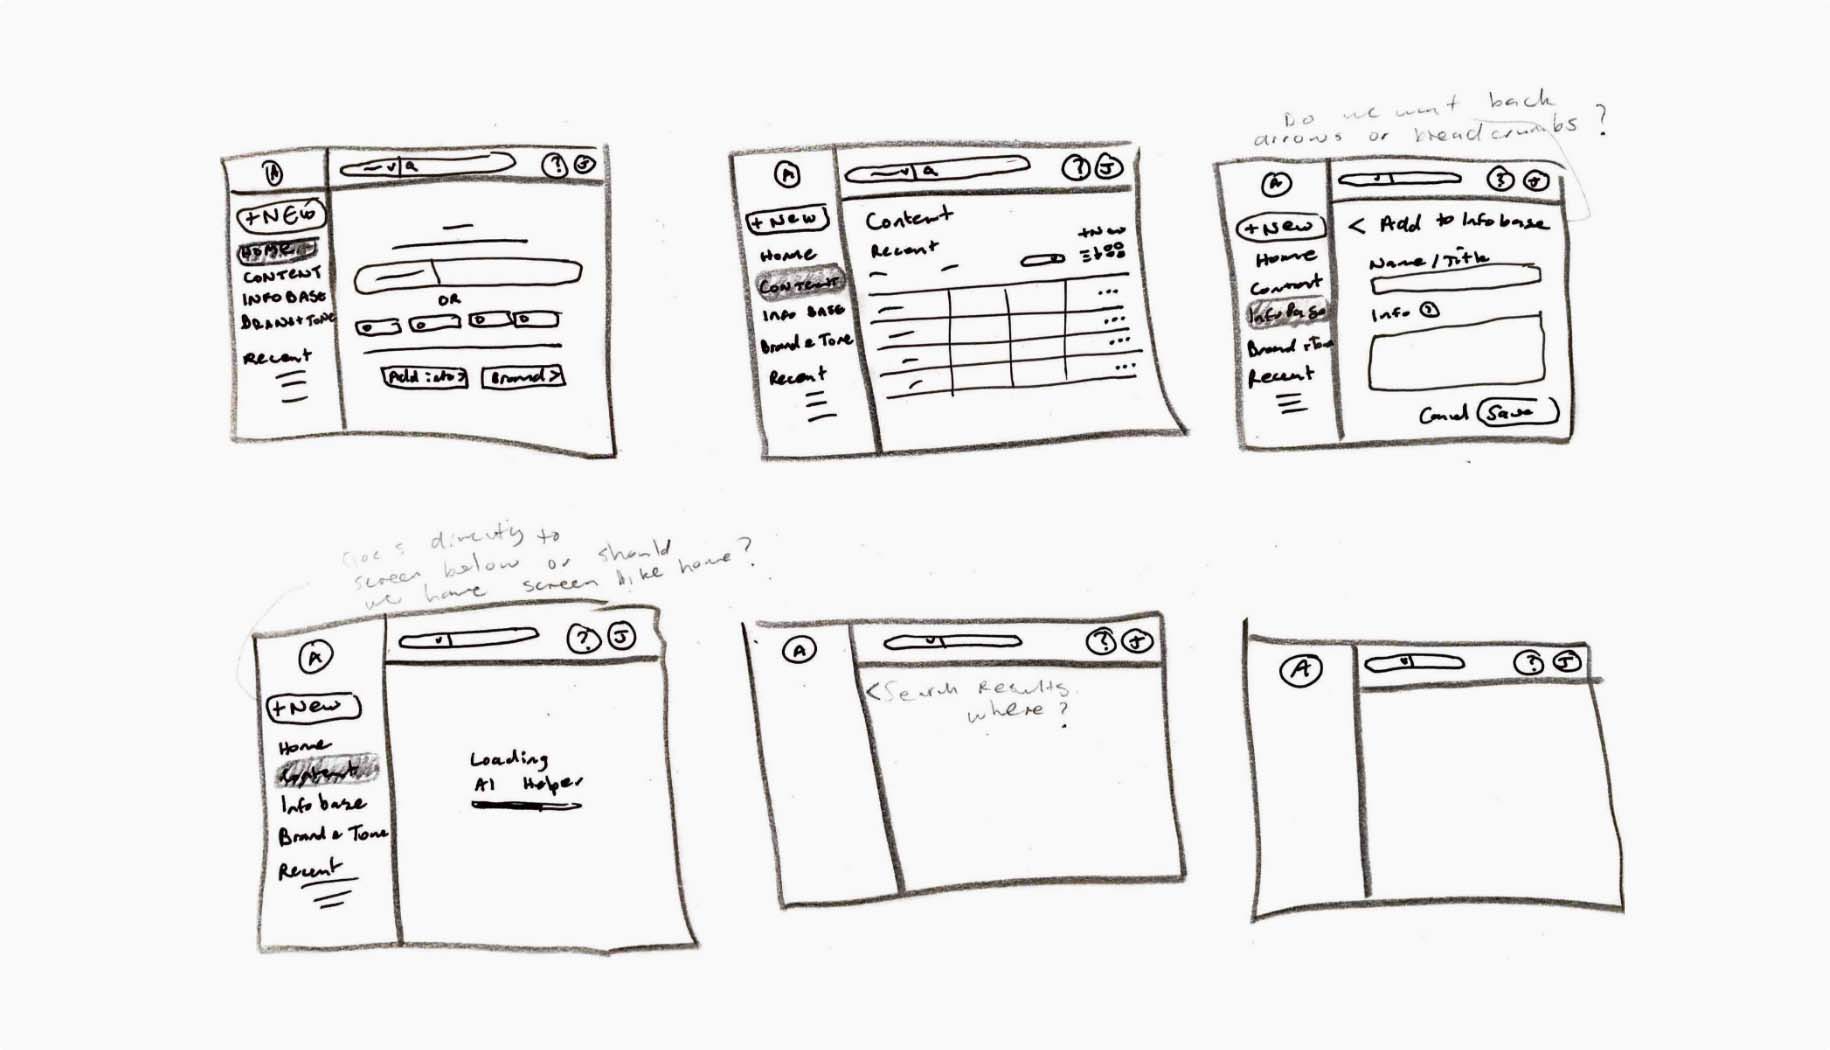 A
? J
+NEW
HOME
CONTENT
INFO BASE
BRAND + TONE
Recent
OR
Add info >
Brand >
A
? J
+New
Home
Content
Info Base
Brand & Tone
Recent
Content
Recent
+New
Do we want back
arrows or breadcrumbs?
A
? J
+New
Home
Content
Brand + Tone
Recent
< Add to Infobase
Name/Title
Info ?
Cancel Save
Goes directly to
screen below or should
we have screen like home?
A
? J
+New
Home
Content
Infobase
Brand & Tone
Recent
Loading
AI Helper
A
? J
<Search Results.
where?
A
? J